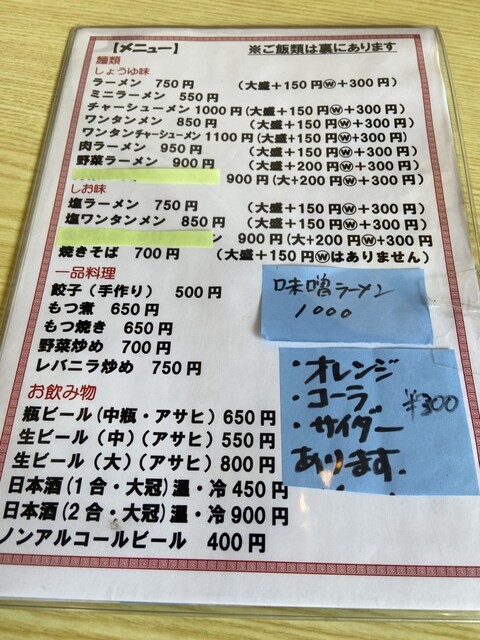 【メニュー】 ※ご飯類は裏にあります
麺類
しょうゆ味
ラーメン 750円 (大盛+150円Ⓦ+300円)
ミニラーメン 550円
チャーシューメン 1000円(大盛+150円Ⓦ+300円)
ワンタンメン 850円 (大盛+150円Ⓦ+300円)
ワンタンチャーシューメン 1100円(大盛+150円Ⓦ+300円)
肉ラーメン 950円 (大盛+150円Ⓦ+300円)
野菜ラーメン 900円 (大盛+200円Ⓦ+300円)
900円(大+200円Ⓦ+300円)
しお味
塩ラーメン 750円 (大盛+150円Ⓦ+300円)
塩ワンタンメン 850円 (大盛+150円Ⓦ+300円)
ン 900円(大+200円Ⓦ+300円
焼きそば 700円 (大盛+150円Ⓦはありません)
一品料理
餃子(手作り) 500円
もつ煮 650円
もつ焼き 650円
野菜炒め 700円
レバニラ炒め 750円
味噌ラーメン
1000
お飲み物
瓶ビール(中瓶・アサヒ)650円
生ビール(中)(アサヒ)550円
生ビール(大)(アサヒ)800円
日本酒(1合・大冠)温・冷450円
日本酒(2合・大冠)温・冷900円
ノンアルコールビール 400円
・オレンジ
・コーラ ¥300
・サイダー
あります.